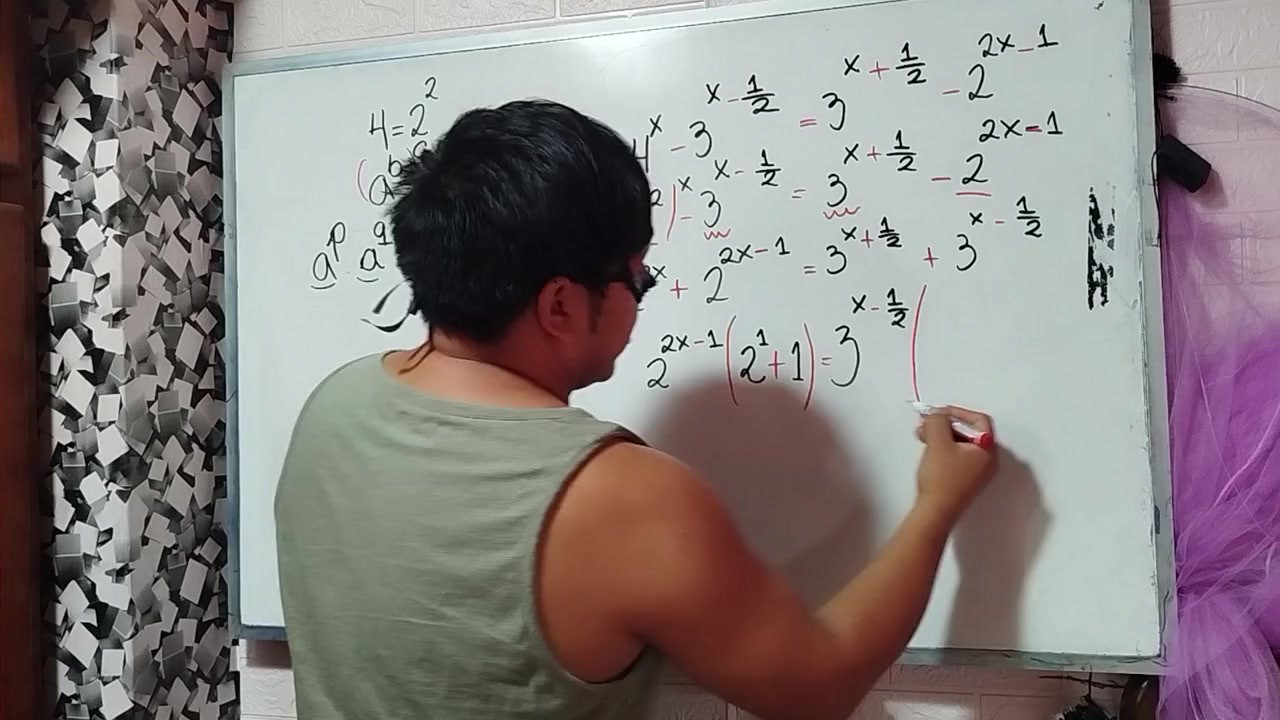 4 = 2²
(a^b
a^p · a^q
4^x - 3^(x - 1/2) = 3^(x + 1/2) - 2^(2x - 1)
2)^x - 3^(x - 1/2) = 3^(x + 1/2) - 2^(2x - 1)
x + 2^(2x - 1) = 3^(x + 1/2) + 3^(x - 1/2)
2^(2x - 1) (2^1 + 1) = 3^(x - 1/2) (